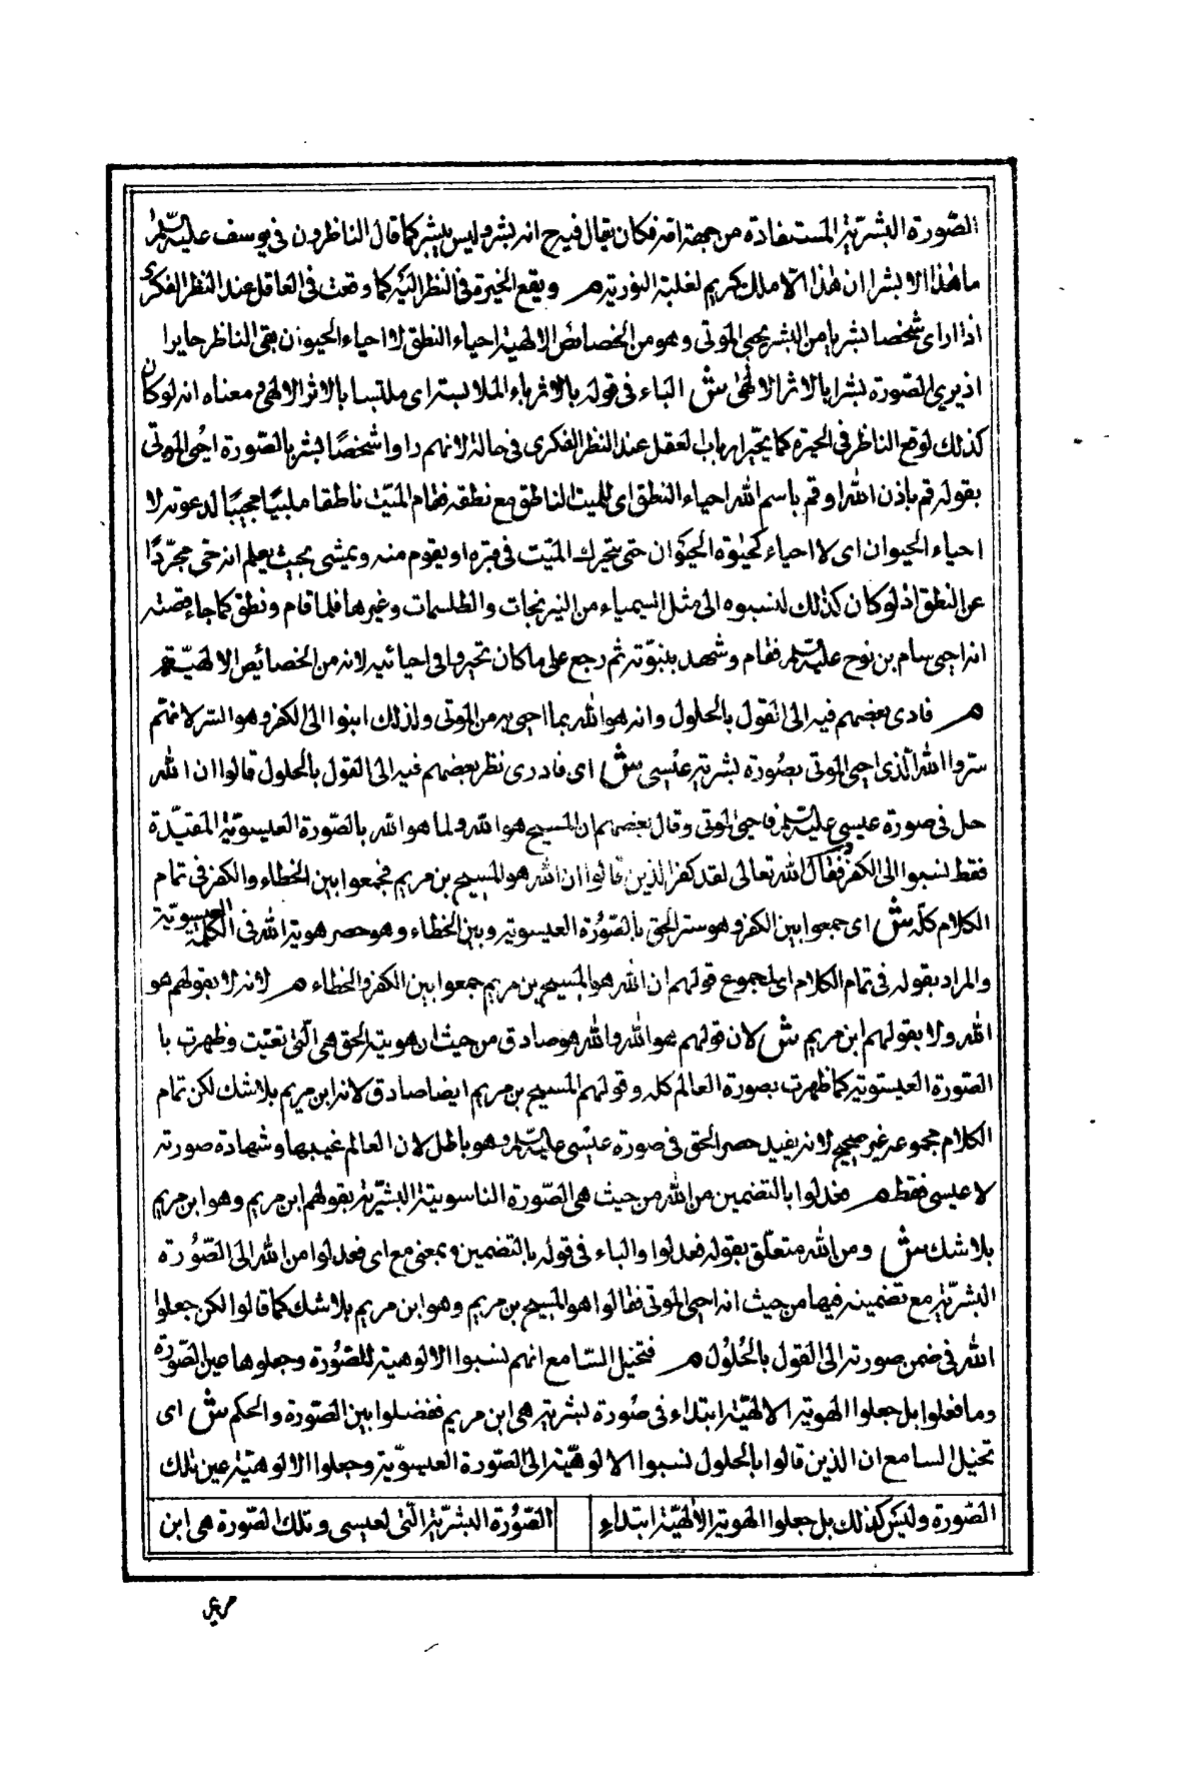 الصّورة البشريّة المستفادة من جهة امّه فكان يقال فيه ح انه بشر وليس ببشر كما قال الناظرون في يوسف عليه السّلم
ما هذا الا بشرا ان هذا الّا ملك كريم لغلبة النورية م ويقع الحيرة في النظر اليه كما وقعت في العاقل عند النظر الفكرى
اذا راى شخصا بشريا من البشر يحيى الموتى وهو من الخصائص الالهية احياء النطق لا احياء الحيوان بقى الناظر حايرا
اذ يرى الصّورة بشرا بالاثر الالهى ش الباء في قوله بالاثر باء الملابسة اى ملتبسا بالاثر الالهى ومعناه انه لو كان
كذلك لوقع الناظر في الحيرة كما يحيّر ارباب العقل عند النظر الفكرى في حاله لانهم راوا شخصًا بشر بالصّورة احيى الموتى
بقوله قم باذن الله او قم باسم الله احياء النطق اى للميت الناطق مع نطقه فقام الميّت ناطقا ملبيًا مجيبًا لدعوته لا
احياء الحيوان اى لا احياء كحيٰوة الحيَوان حتى يتحرك الميّت في قبره او يقوم منه ويمشى بحيث يعلم انه حى مجرّدًا
عن النطق اذ لو كان كذلك لنسبوه الى مثل السيمياء من النيرنجات والطلسمات وغيرها فلما قام ونطق كما جاء في قصته
انه احيى سام بن نوح عليه السّلم فقام وشهد بنبوّته ثم رجع على ما كان تحيروا في احيائه لانه من الخصائص الالهيّة
م فادى بعضهم فيه الى القول بالحلول وانه هو الله بما احيى به من الموتى ولذلك انبوا الى الكفر وهو الستر لانهم
ستروا الله الّذى احيى الموتى بصُورة بشرية عيْسى ش اى فادى نظر بعضهم فيه الى القول بالحلول قالوا ان الله
حل في صورة عيسى عليه السّلم فاحيى الموتى وقال بعضهم ان المسيح هو الله ولما هو الله بالصّورة العيسويّة المقيّدة
فقط نسبوا الى الكفر فقال الله تعالى لقد كفر الذين قالوا ان الله هو المسيح بن مريم فجمعوا بين الخطاء والكفر في تمام
الكلام كلّه ش اى جمعوا بين الكفر وهو ستر الحق بالصّوُرة العيسوية وبين الخطاء وهو حصر هوية الله في الكلمة العيسويّة
والمراد بقوله في تمام الكلام اى بمجموع قولهم ان الله هو المسيح بن مريم جمعوا بين الكفر والخطاء م لانه لا بقولهم هو
الله ولا بقولهم ابن مريم ش لان قولهم هو الله والله هو صادق من حيث ان هوية الحق هى الّتى تعيّنت وظهرت با
الصّورة العيسوّية كما ظهرت بصورة العالم كله وقولهم المسيح بن مريم ايضا صادق لانه ابن مريم بلا شك لكن تمام
الكلام مجموعه غير صحيح لانه يفيد حصر الحق في صورة عيسٰى عليه السّلم وهو باطل لان العالم غيبها وشهادة صورته
لا عيسى فقط م فعدلوا بالتضمين من الله من حيث هى الصّورة الناسوتية البشريّة بقولهم ابن مريم وهو ابن مريم
بلا شك ش ومن الله متعلّق بقوله فعدلوا والباء في قوله بالتضمين بمعنى مع اى فعدلوا من الله الى الصّوُرة
البشريّة مع تضمينه فيها من حيث انه احيى الموتى فقالوا هو المسيح بن مريم وهو ابن مريم بلا شك كما قالوا لكن جعلوا
الله في ضمن صورته الى القول بالحُلوُل م فتخيل السّامع انهم نسبوا الالوهية للصّوُرة وجعلوها عين الصّورة
وما فعلوا بل جعلوا الهوية الالهيّة ابتداء في صُورة بشرية هى ابن مريم ففصلوا بين الصّورة والحكم ش اى
تخيل السامع ان الذين قالوا بالحلول نسبوا الالوهيّة الى الصّورة العيسوّية وجعلوا الالوهيّة عين تلك
الصّورة وليس كذلك بل جعلوا الهوية الالهيّة ابتداءِ الصّوُرة البشريّة الّتى لعيسى وتلك الصّورة هى ابن
مريم